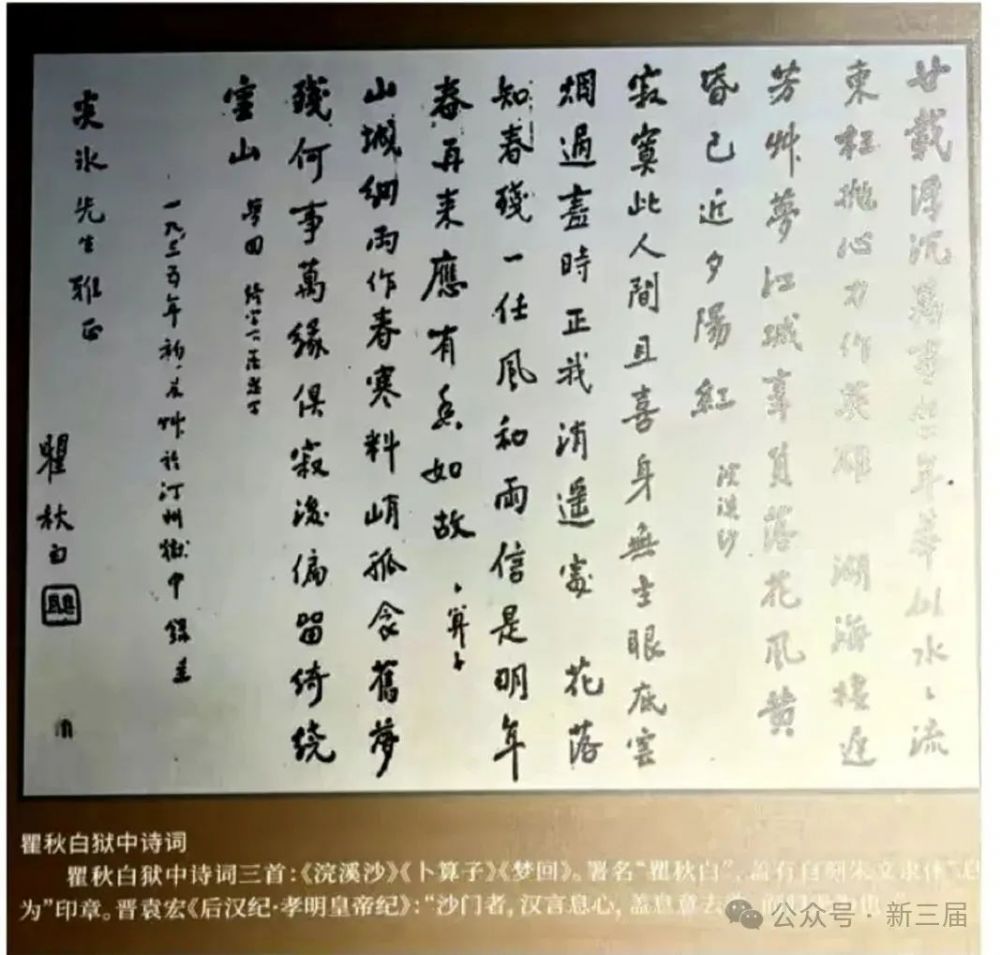 廿載浮沉萬事空年華似水〻流
東枉抛心力作英雄 湖海棲遲
芳艸夢江城辜負落花風黄
昏已近夕陽紅 浣溪沙
寂寞此人間且喜身無主眼底雲
烟過盡時正我消遥處 花落
知春殘一任風和雨信是明年
春再来應有香如故 卜算子
山城細雨作春寒料峭孤衾舊夢
殘何事萬緣俱寂後偏留綺繞
靈山 夢回
一九三五年初夏艸於汀州獄中 錄呈
炎冰先生雅正
瞿秋白
瞿秋白狱中诗词
瞿秋白狱中诗词三首:《浣溪沙》《卜算子》《梦回》。署名“瞿秋白”,盖有自刻朱文隶体“息
为”印章。晋袁宏《后汉纪·孝明皇帝纪》:“沙门者,汉言息心,盖息意去
公众号·新三届